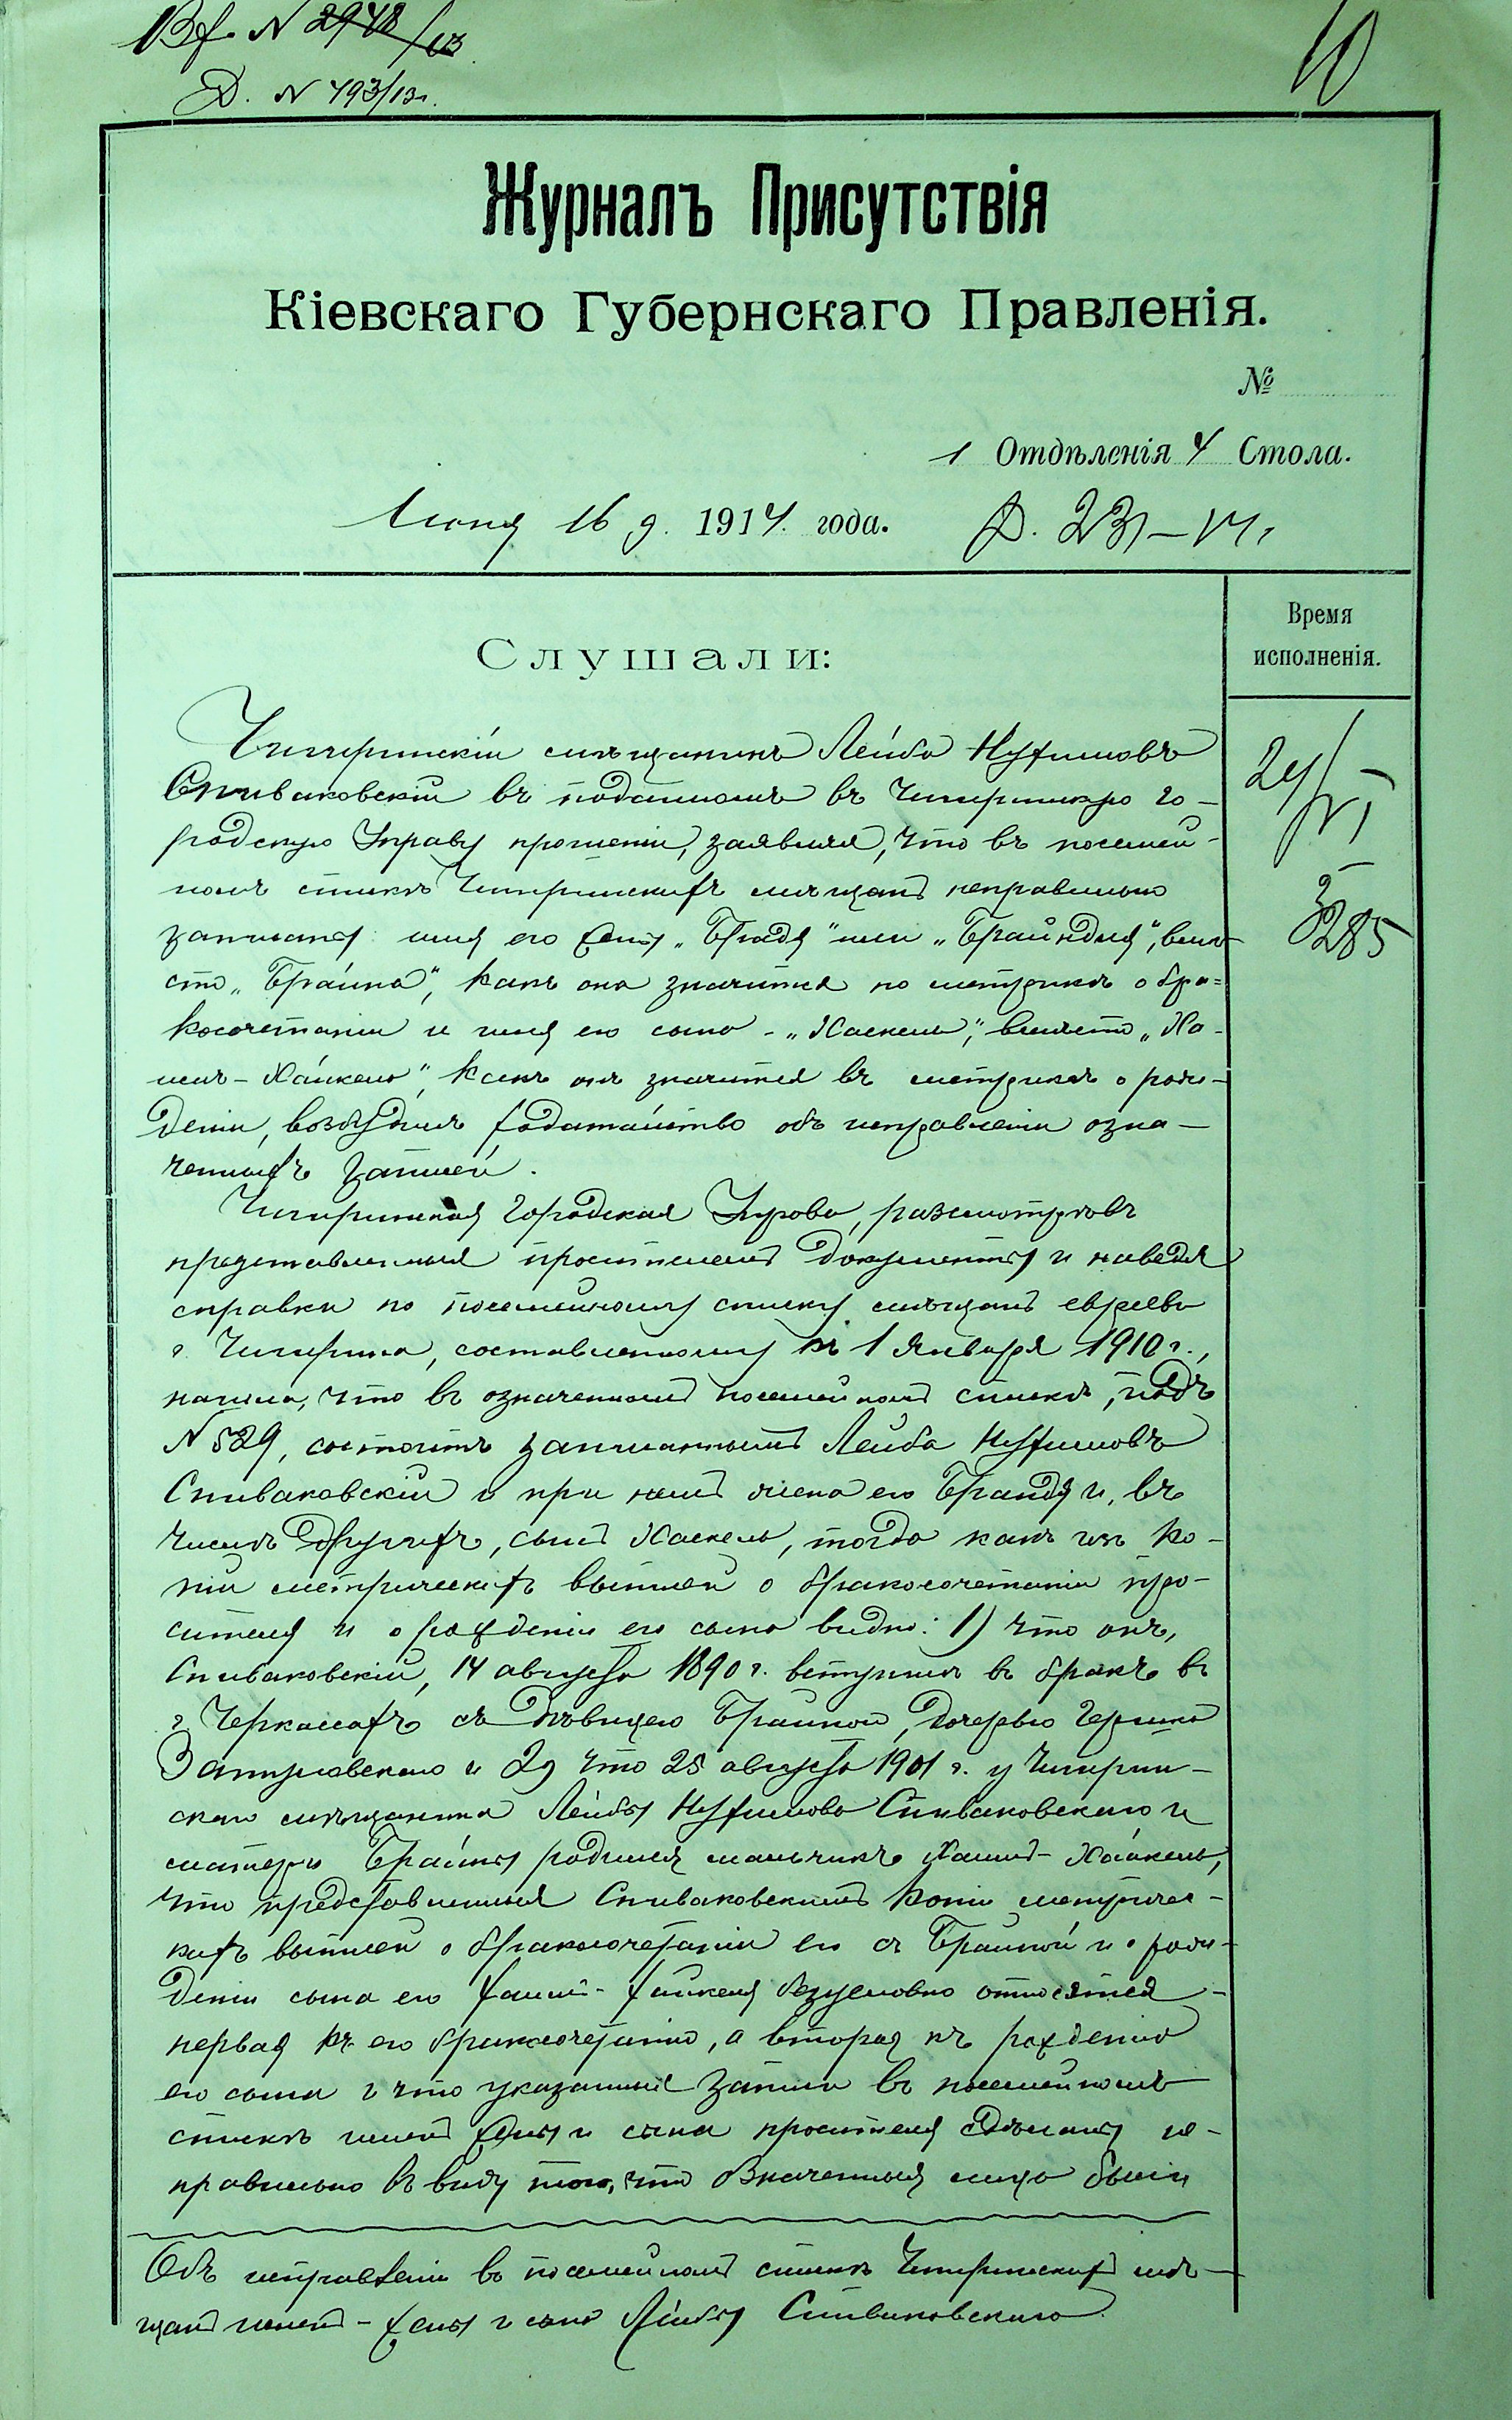 Вх. N 2948/13
Д. N 493/13 г.
10
Журналъ Присутствія
Кіевскаго Губернскаго Правленія.
№
1 Отдѣленія 4 Стола.
Іюня 16 д. 1914 года. Д. 231–14 г.
Время
исполненія.
Слушали:
24/VI
3285
Чигиринскій мѣщанинъ Лейба Нухимовъ
Спиваковскій въ поданномъ въ Чигиринскую го-
родскую Управу прошеніи, заявляя, что въ посемей-
номъ спискѣ Чигиринскихъ мѣщанъ неправильно
записаны имя его жены „Брандя" или „Брайндля", вмѣ-
сто „Брайна", какъ она значится по метрикѣ о бра-
косочетаніи и имя его сына - „Хаскель", вмѣсто „Ха-
имъ-Хайкель", какъ онъ значится въ метрикѣ о рож-
деніи, возбудилъ ходатайство объ исправленіи озна-
ченныхъ записей.
Чигиринская Городская Управа, разсмотрѣвъ
представленные просителемъ документы и наведя
справки по посемейному списку мѣщанъ евреевъ
г. Чигирина, составленному къ 1 Января 1910 г.,
нашла, что въ означенномъ посемейномъ спискѣ, подъ
N 529, состоитъ записаннымъ Лейба Нухимовъ
Спиваковскій и при немъ жена его Брандя и, въ
числѣ другихъ, сынъ Хаскель, тогда какъ изъ ко-
пій метрическихъ выписей о бракосочетаніи про-
сителя и о рожденіи его сына видно: 1) что онъ,
Спиваковскій, 14 августа 1890 г. вступилъ въ бракъ въ
г. Черкассахъ съ дѣвицею Брайной, дочерью Гершка
Затуловскаго и 2) что 25 августа 1901 г. у Чигирин-
скаго мѣщанина Лейбы Нухимова Спиваковскаго и
матери Брайны родился мальчикъ Хаимъ-Хайкель,
что представленныя Спиваковскимъ копіи метричес-
кихъ выписей о бракосочетаніи его съ Брайной и о рож-
деніи сына его Хаимъ-Хайкеля безусловно относятся -
первая къ его бракосочетанію, а вторая къ рожденію
его сына и что указанныя записи въ посемейномъ
спискѣ именъ жены и сына просителя сдѣланы не-
правильно въ виду того, что означенныя лица были
Объ исправленіи въ посемейномъ спискѣ Чигиринскихъ мѣ-
щанъ именъ - жены и сына Лейбы Спиваковскаго.